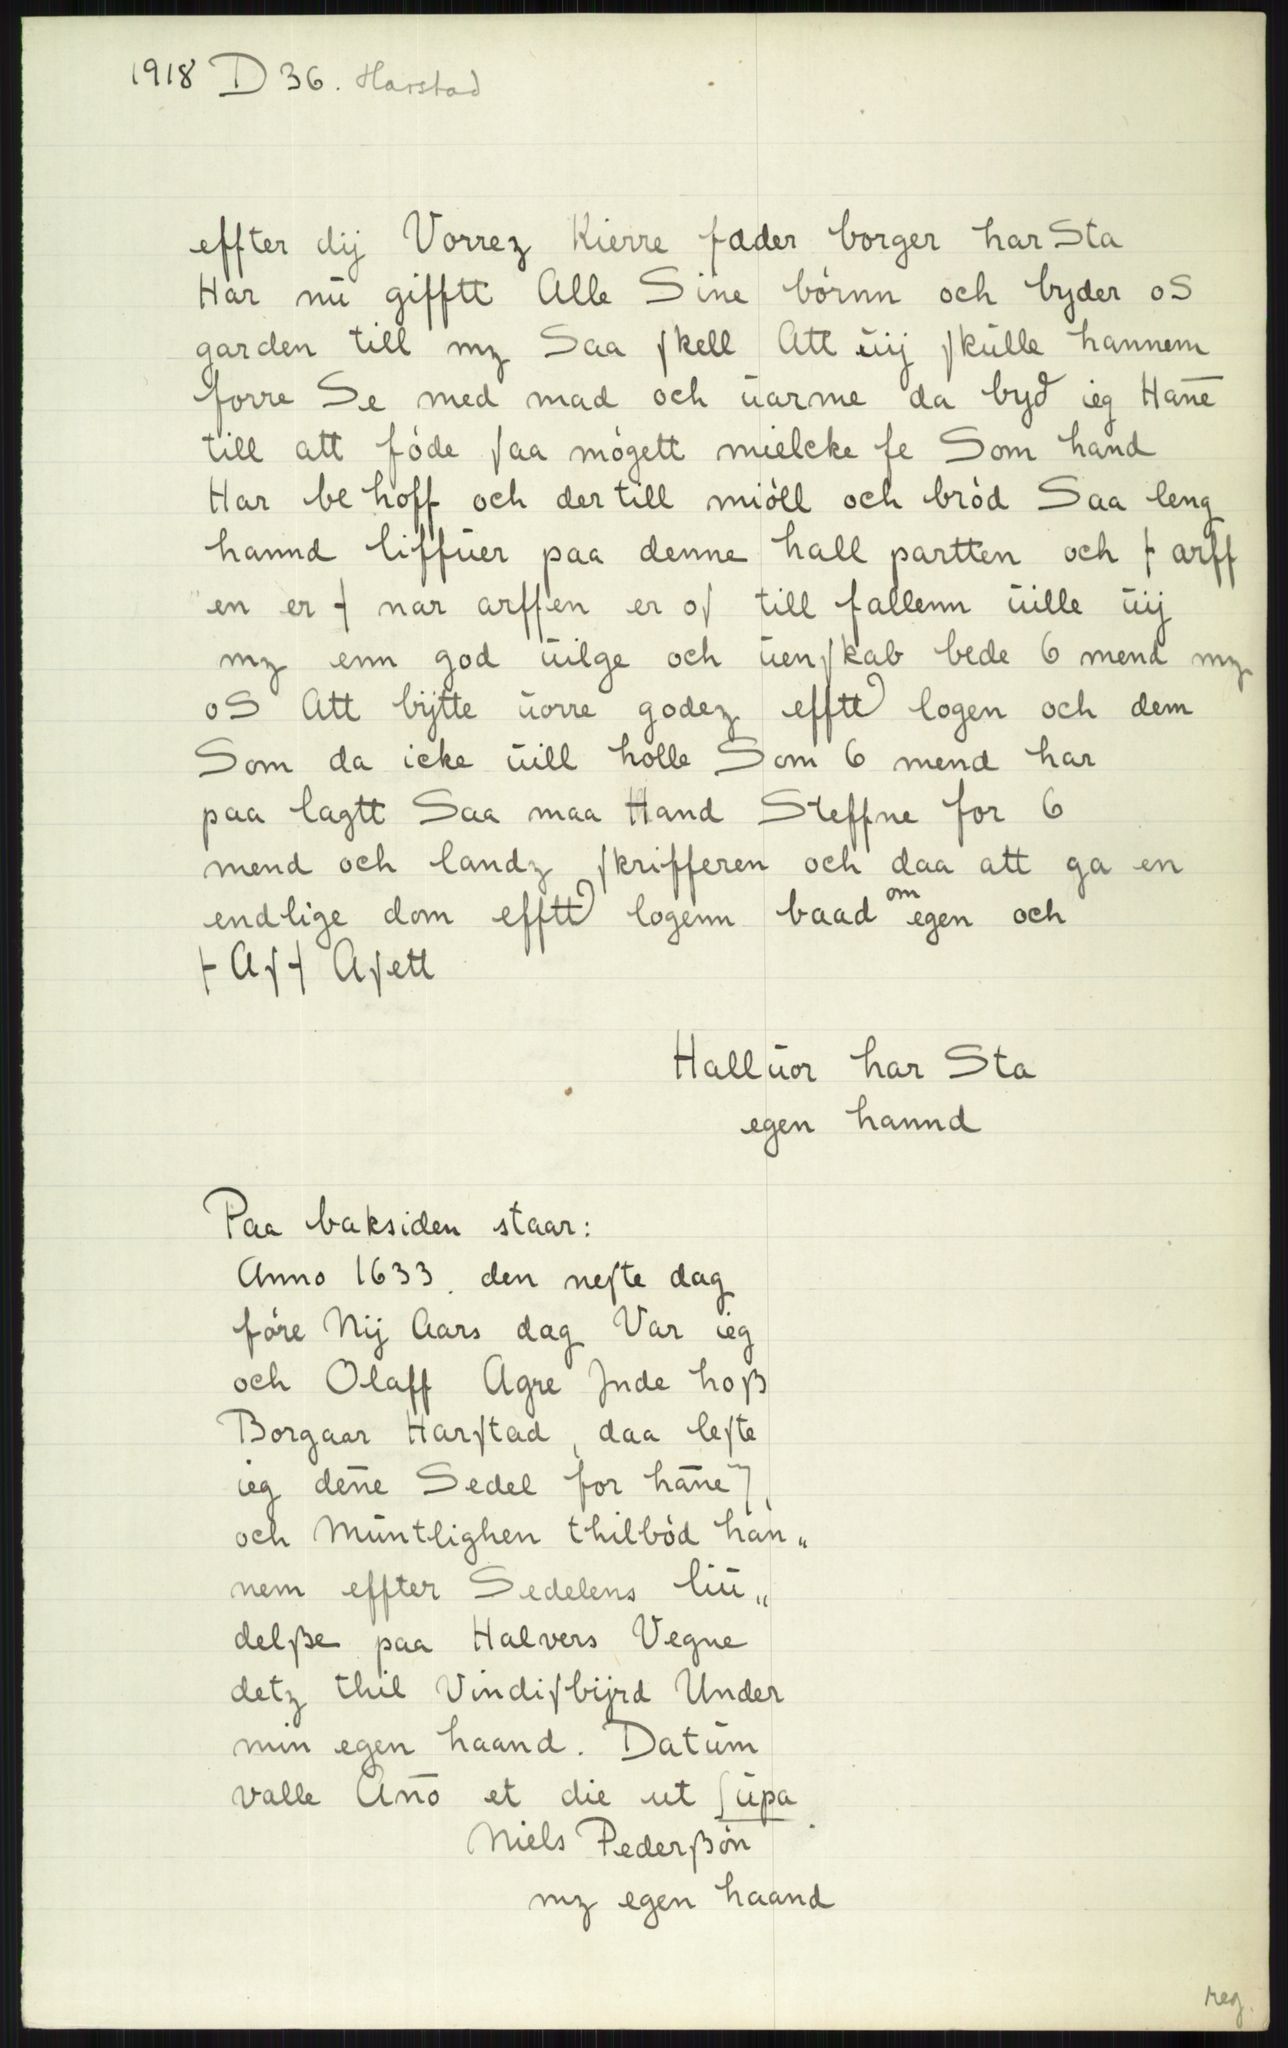 1918 D 36. Harstad
effter dij Vorrez Kierre fader borger har Sta
Har nū gifftt Alle Sine børnn och byder oS
garden till mz Saa ſkell Att ūij ſkūlle hannem
forre Se med mad och ūarme da byd ieg Hañe
till att føde ſaa møgett mielcke fe Som hand
Har be hoff och der till miøll och brød Saa leng
hannd liffūer paa denne hall partten och ⊢ arff
en er ⊣ nar arffen er oſ till fallenn ūille ūij
mz enn god ūilge och ūenſkab bede 6 mend mz
oS Att bijtte ūorre godez efftt logen och dem
Som da icke ūill holle Som 6 mend har
paa lagtt Saa maa Hand Steffne for 6
mend och landz ſkrifferen och daa att ga en
endlige dom efftt logenn baad om egen och
⊢ Aſ ⊣ Aſett
Hallūor har Sta
egen hannd
Paa baksiden staar:
Anno 1633. den neſte dag
føre Nij Aars dag Var ieg
och Olaff Agre Jnde hoß
Borgaar Harſtad, daa leſte
ieg deñe Sedel for hañe
och Mūntlighen thilbød han„
nem effter Sedelens liū„
delße paa Halvers Vegne
detz thil Vindiſbijrd Under
min egen haand. Datūm
valle Año et die ut ſūpa
Niels Pederßøn
mz egen haand
reg.